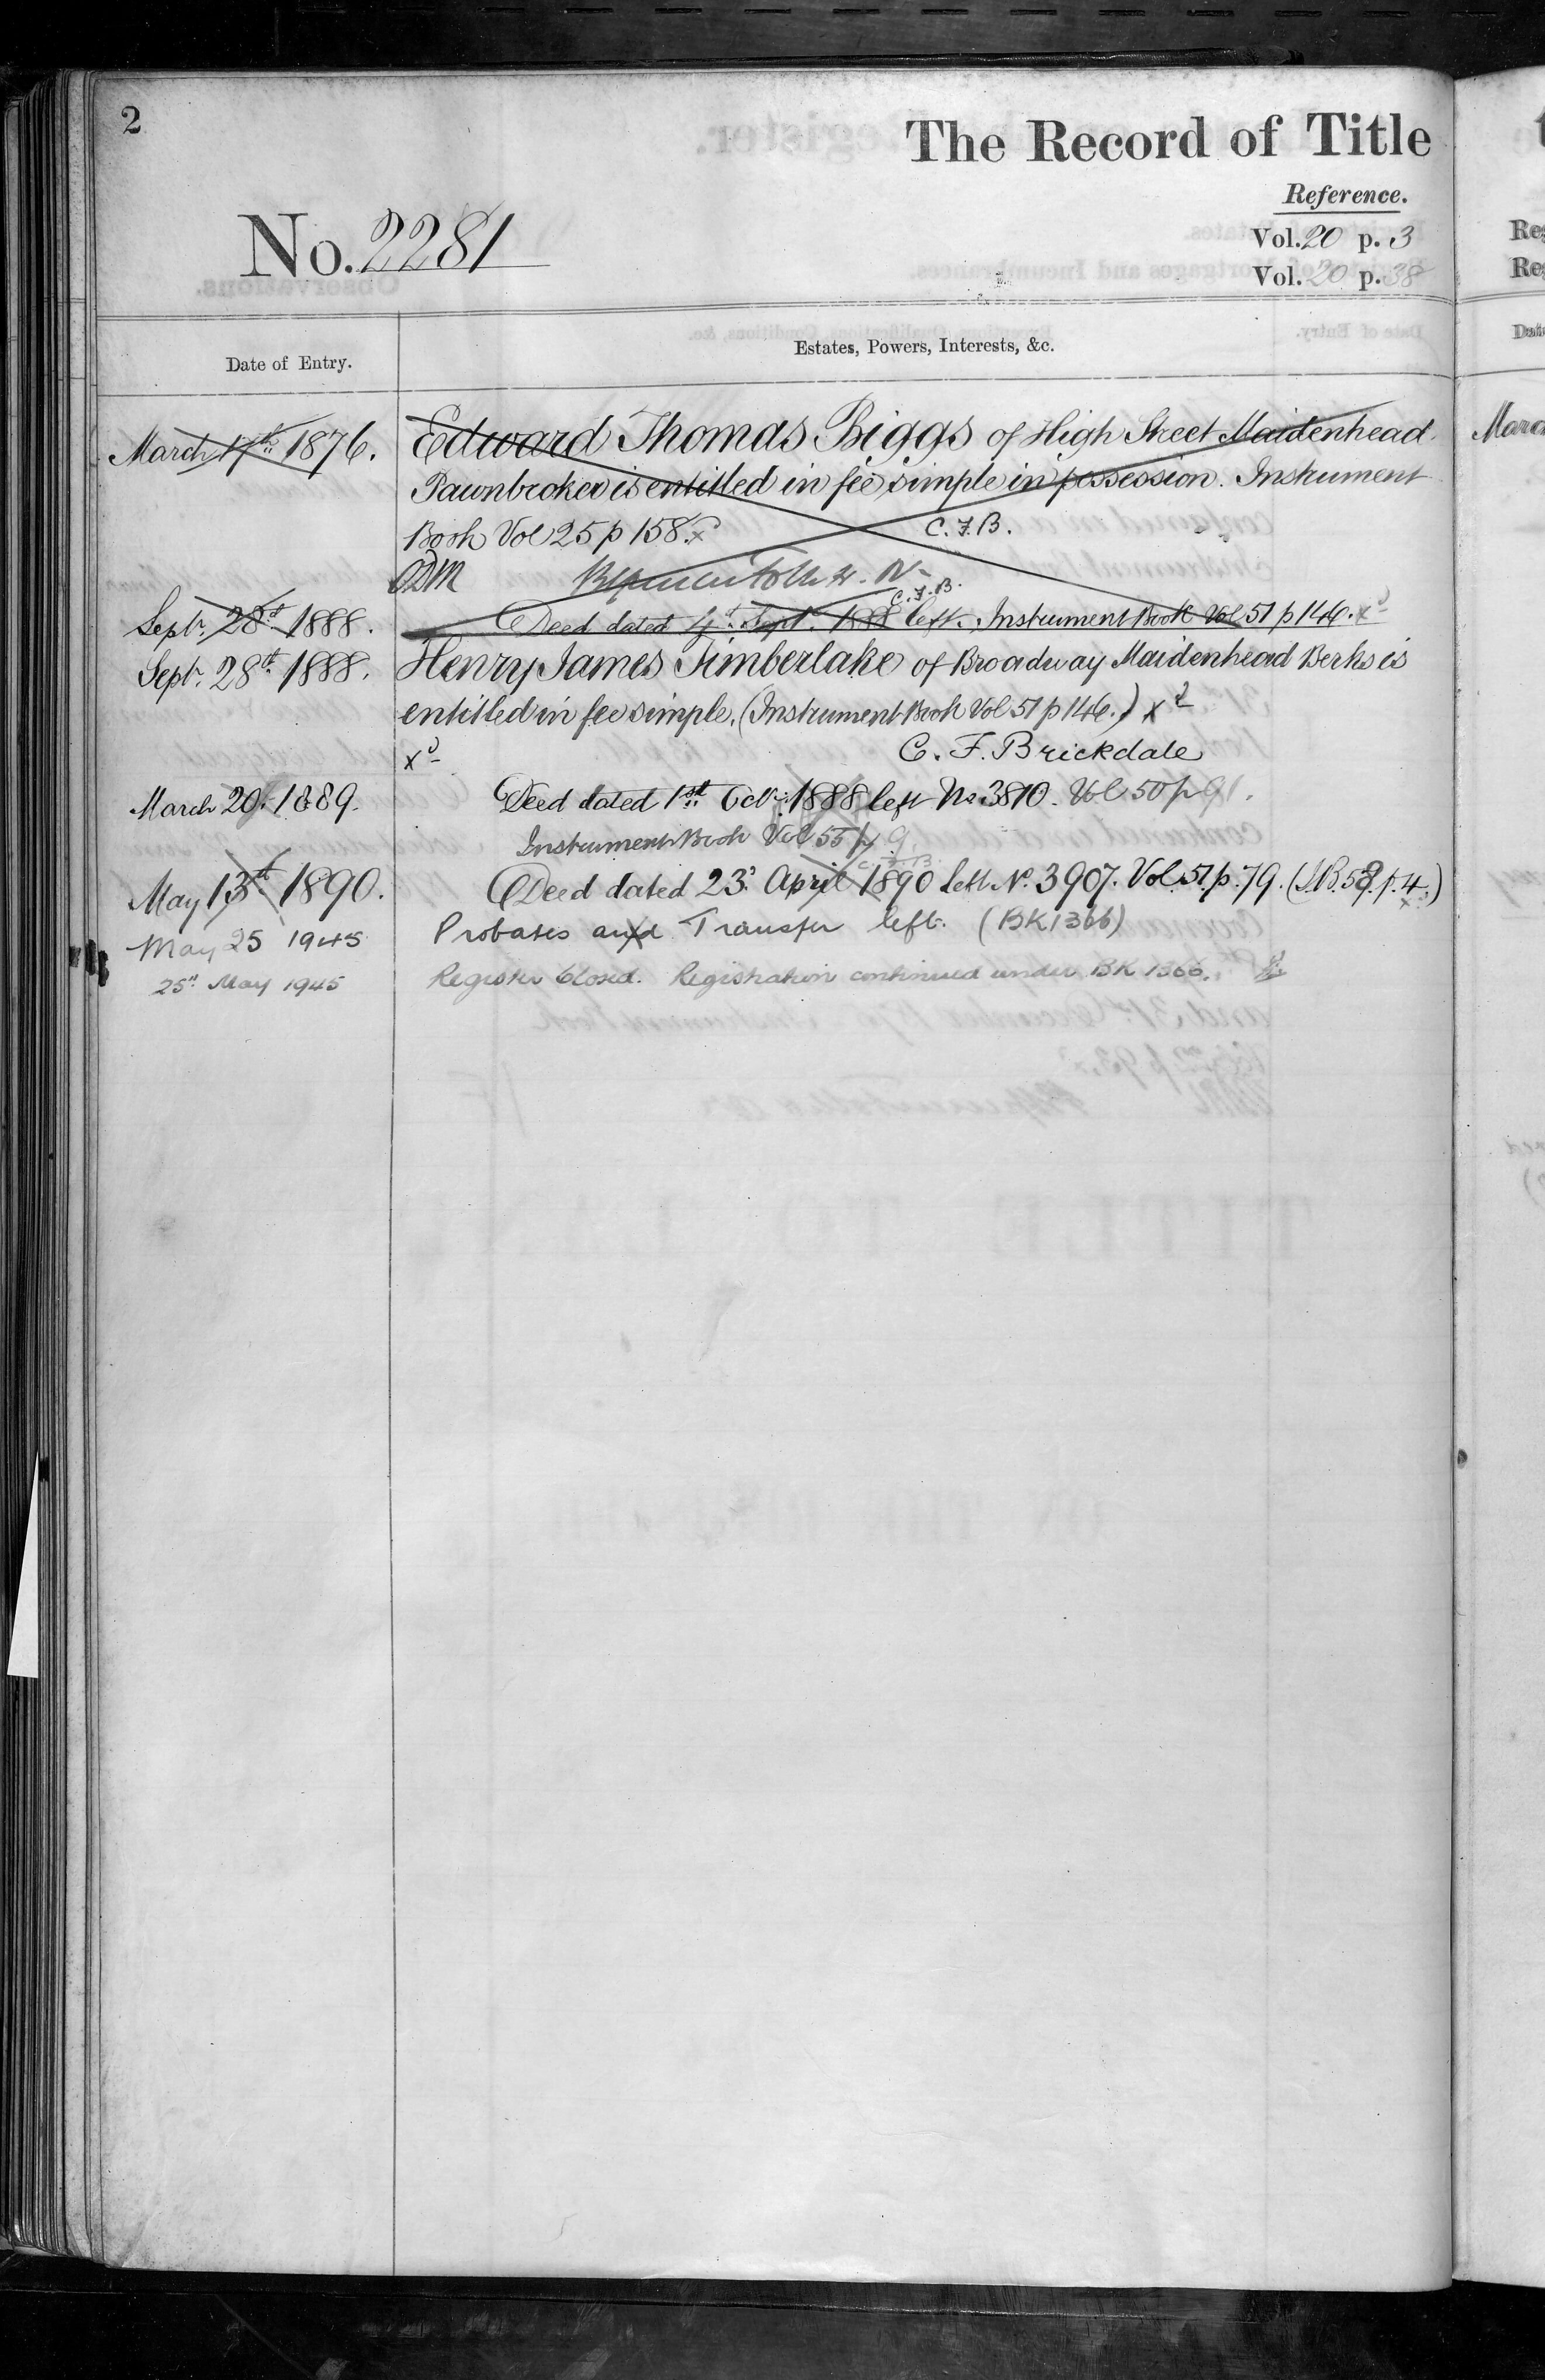 2
The Record of Title
Reference.
No. 2281
Vol. 20 p. 3
Vol. 20 p. 38
Date of Entry.
Estates, Powers, Interests, &c.
March 17th 1876.
Edward Thomas Biggs of High Street Maidenhead
Pawnbroker is entitled in fee simple in possession. Instrument
Book Vol 25 p 158. x
C.F.B.
C.F.B.
Sept. 28th 1888.
Deed dated 4th Sept. 1888 left. Instrument Book Vol 51 p 146. x
Sept. 28th 1888.
Henry James Timberlake of Broadway Maidenhead Berks is
entitled in fee simple. (Instrument Book Vol 51 p 146.) x
x
C. F. Brickdale
March 20. 1889.
Deed dated 1st Oct. 1888 left No 3810. Vol 50 p 91.
Instrument Book Vol 55 p 9
May 13th 1890.
Deed dated 23d April 1890 left No. 3907. Vol. 51. p. 79. (I.B. 58. p. 4.)
May 25 1945
Probates and Transfer left. (BK1366)
25th May 1945
Register Closed. Registration continued under BK 1366.
Reg
Reg
Date
March